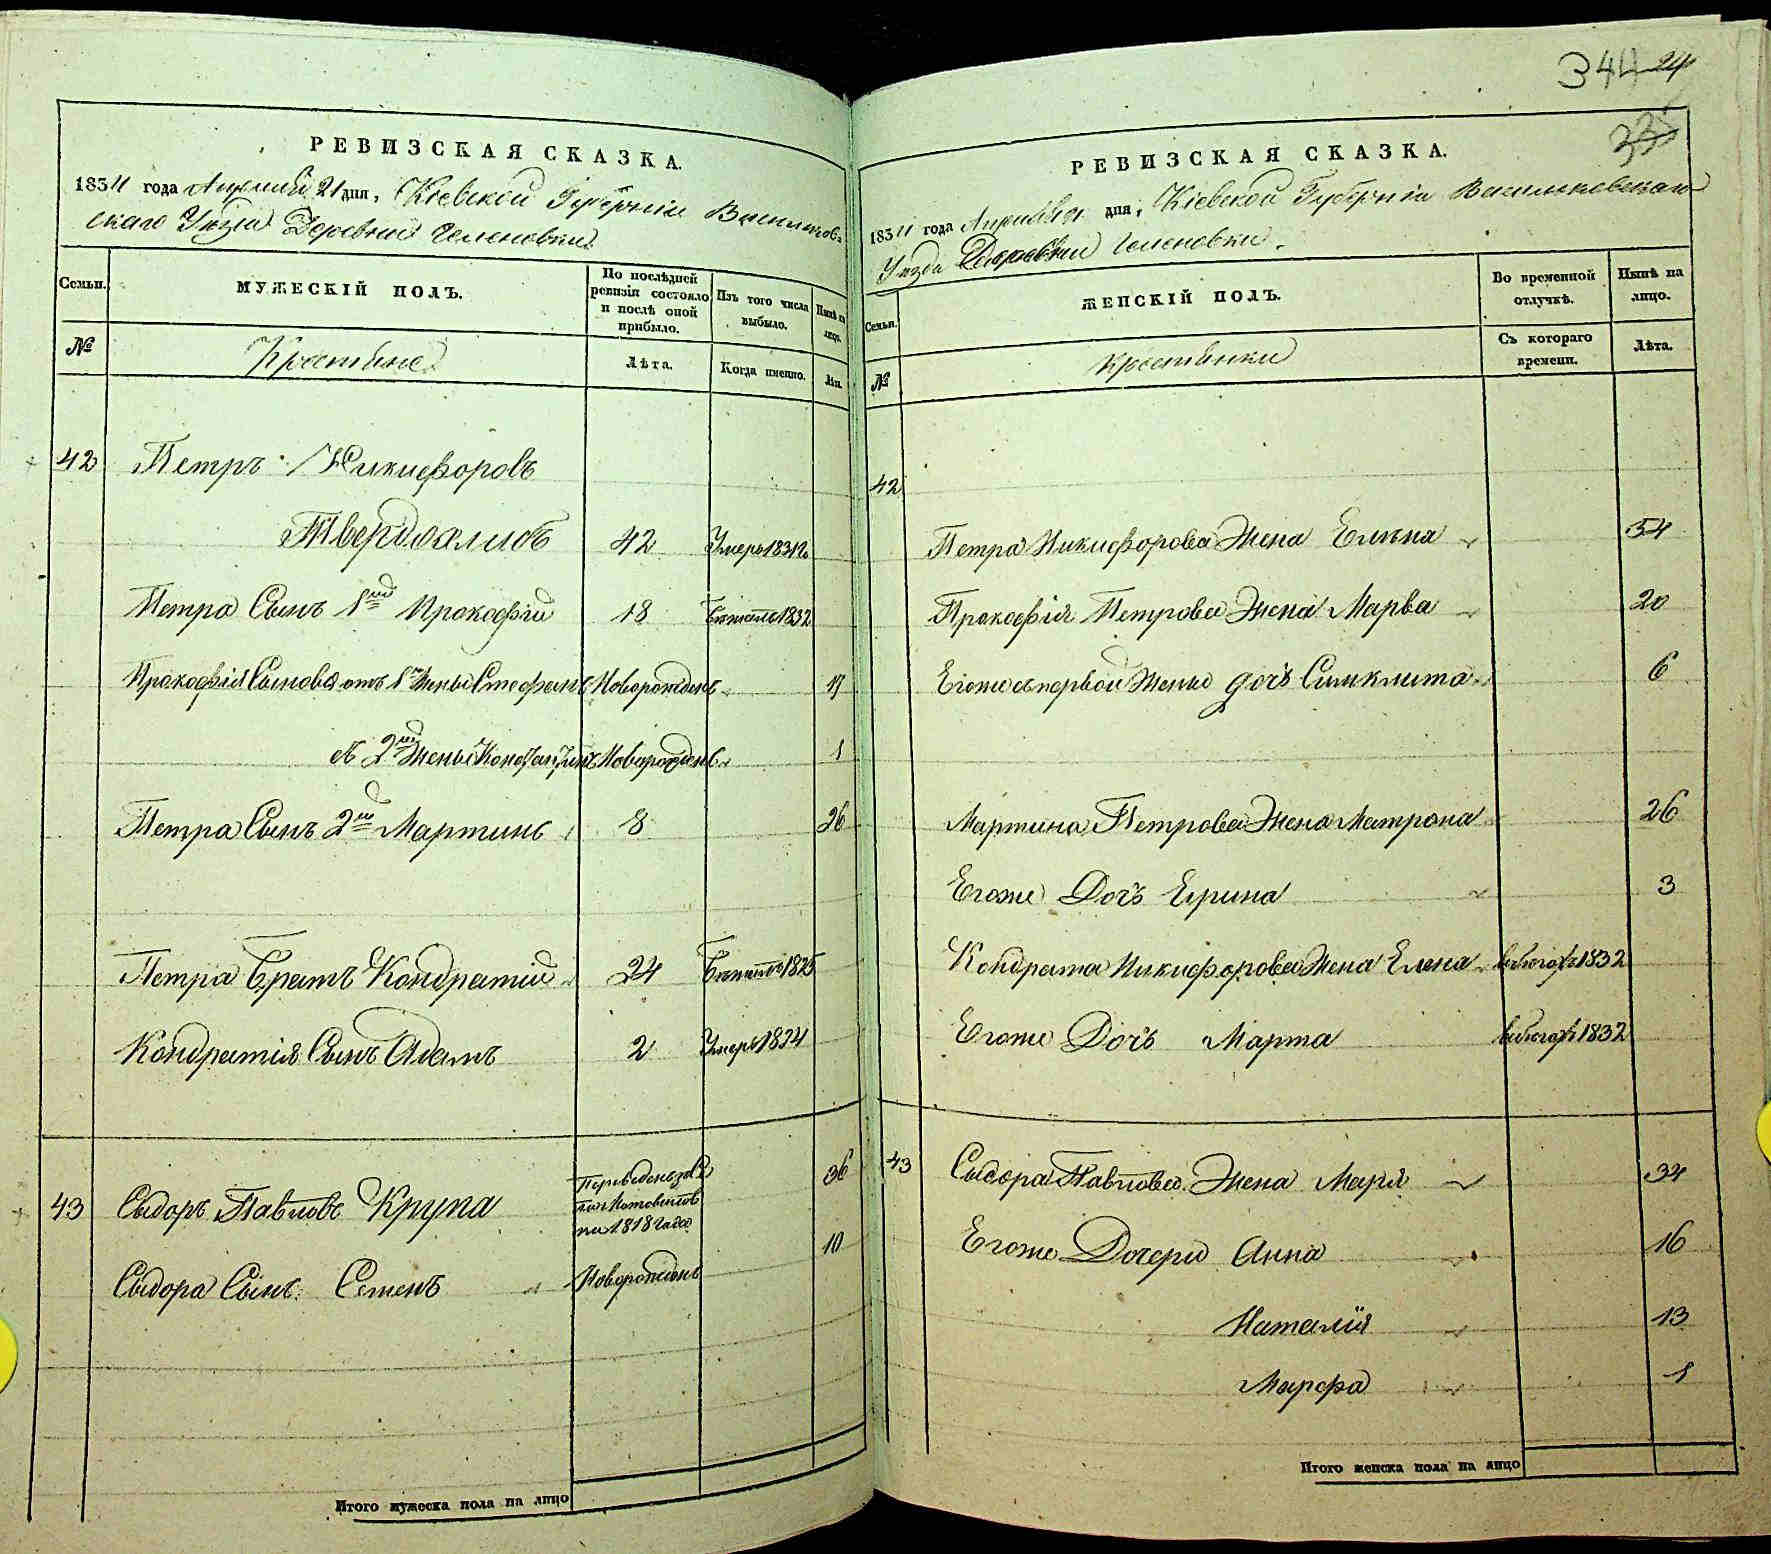 344 24
335
РЕВИЗСКАЯ СКАЗКА.
1834 года Апреля 21 дня, Кіевской Губерніи Васильков-
скаго Уезда Деревни Челеновки
Семьи. МУЖЕСКІЙ ПОЛЪ. По послѣдней ревизіи состояло и послѣ оной прибыло. Изъ того числа выбыло. Нынѣ на лицо.
№ Крестьяне Лѣта. Когда именно. Лѣ.
42 Петръ Никифоровъ
Твердохлибъ 42 Умеръ 1831
Петра Сынъ 1й Прокофій 18 1832
Прокофія Сыновья отъ 1й Жены Стефанъ Новорожденъ
съ 2й Жены Константинъ Новорожденъ 1
Петра Сынъ 2й Мартинъ 8 26
Петра Братъ Кондратій 24 1825
Кондратія Сынъ Адамъ 2 Умеръ 1824
43 Сыдоръ Павловъ Крупа Переведенъ 1818 Года 36
Сыдора Сынъ Семенъ Новорожденъ 10
Итого мужеска пола на лицо
РЕВИЗСКАЯ СКАЗКА.
1834 года Апреля 21 дня, Кіевской Губерніи Васильковскаго
Уезда Деревни Челеновки.
Семьи. ЖЕНСКІЙ ПОЛЪ. Во временной отлучкѣ. Нынѣ на лицо.
№ Крестьянки Съ котораго времени. Лѣта.
42
Петра Никифорова Жена Елена 54
Прокофія Петрова Жена Марва 20
Егоже съ первой Жены дочь Синклита 6
Мартина Петрова Жена Матрона 26
Егоже Дочь Ерина 3
Кондрата Никифорова Жена Елена 1832
Егоже Дочь Марта 1832
43 Сыдора Павлова Жена Марія 34
Егоже Дочери Анна 16
Наталія 13
Марфа 1
Итого женска пола на лицо